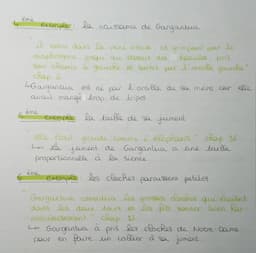 4 ème exemple la naissance de Gargantua
il entra dans la veine creuse et grimpant par le
diaphragme jusqu'au dessus des épaules prit
son chemin à gauche et sortit par l'oreille gauche"
chap 6
↳Gargantua est né par l'oreille de sa mère car elle
avait mangé trop de tripes
ème exemple la taille de sa jument
elle était grande comme 6 éléphants" chap 16
↳ la jument de Gargantua a une taille
proportionnelle à la sienne
ème exemple les cloches paraissent petites
"Gargantua considéra les grosses cloches qui étaient
dans les deux tours et les fit sonner bien har-
monieusement" Chap 17
↳ Gargantua a pris les cloches de Notre Dame
pour en faire un collier à sa jument